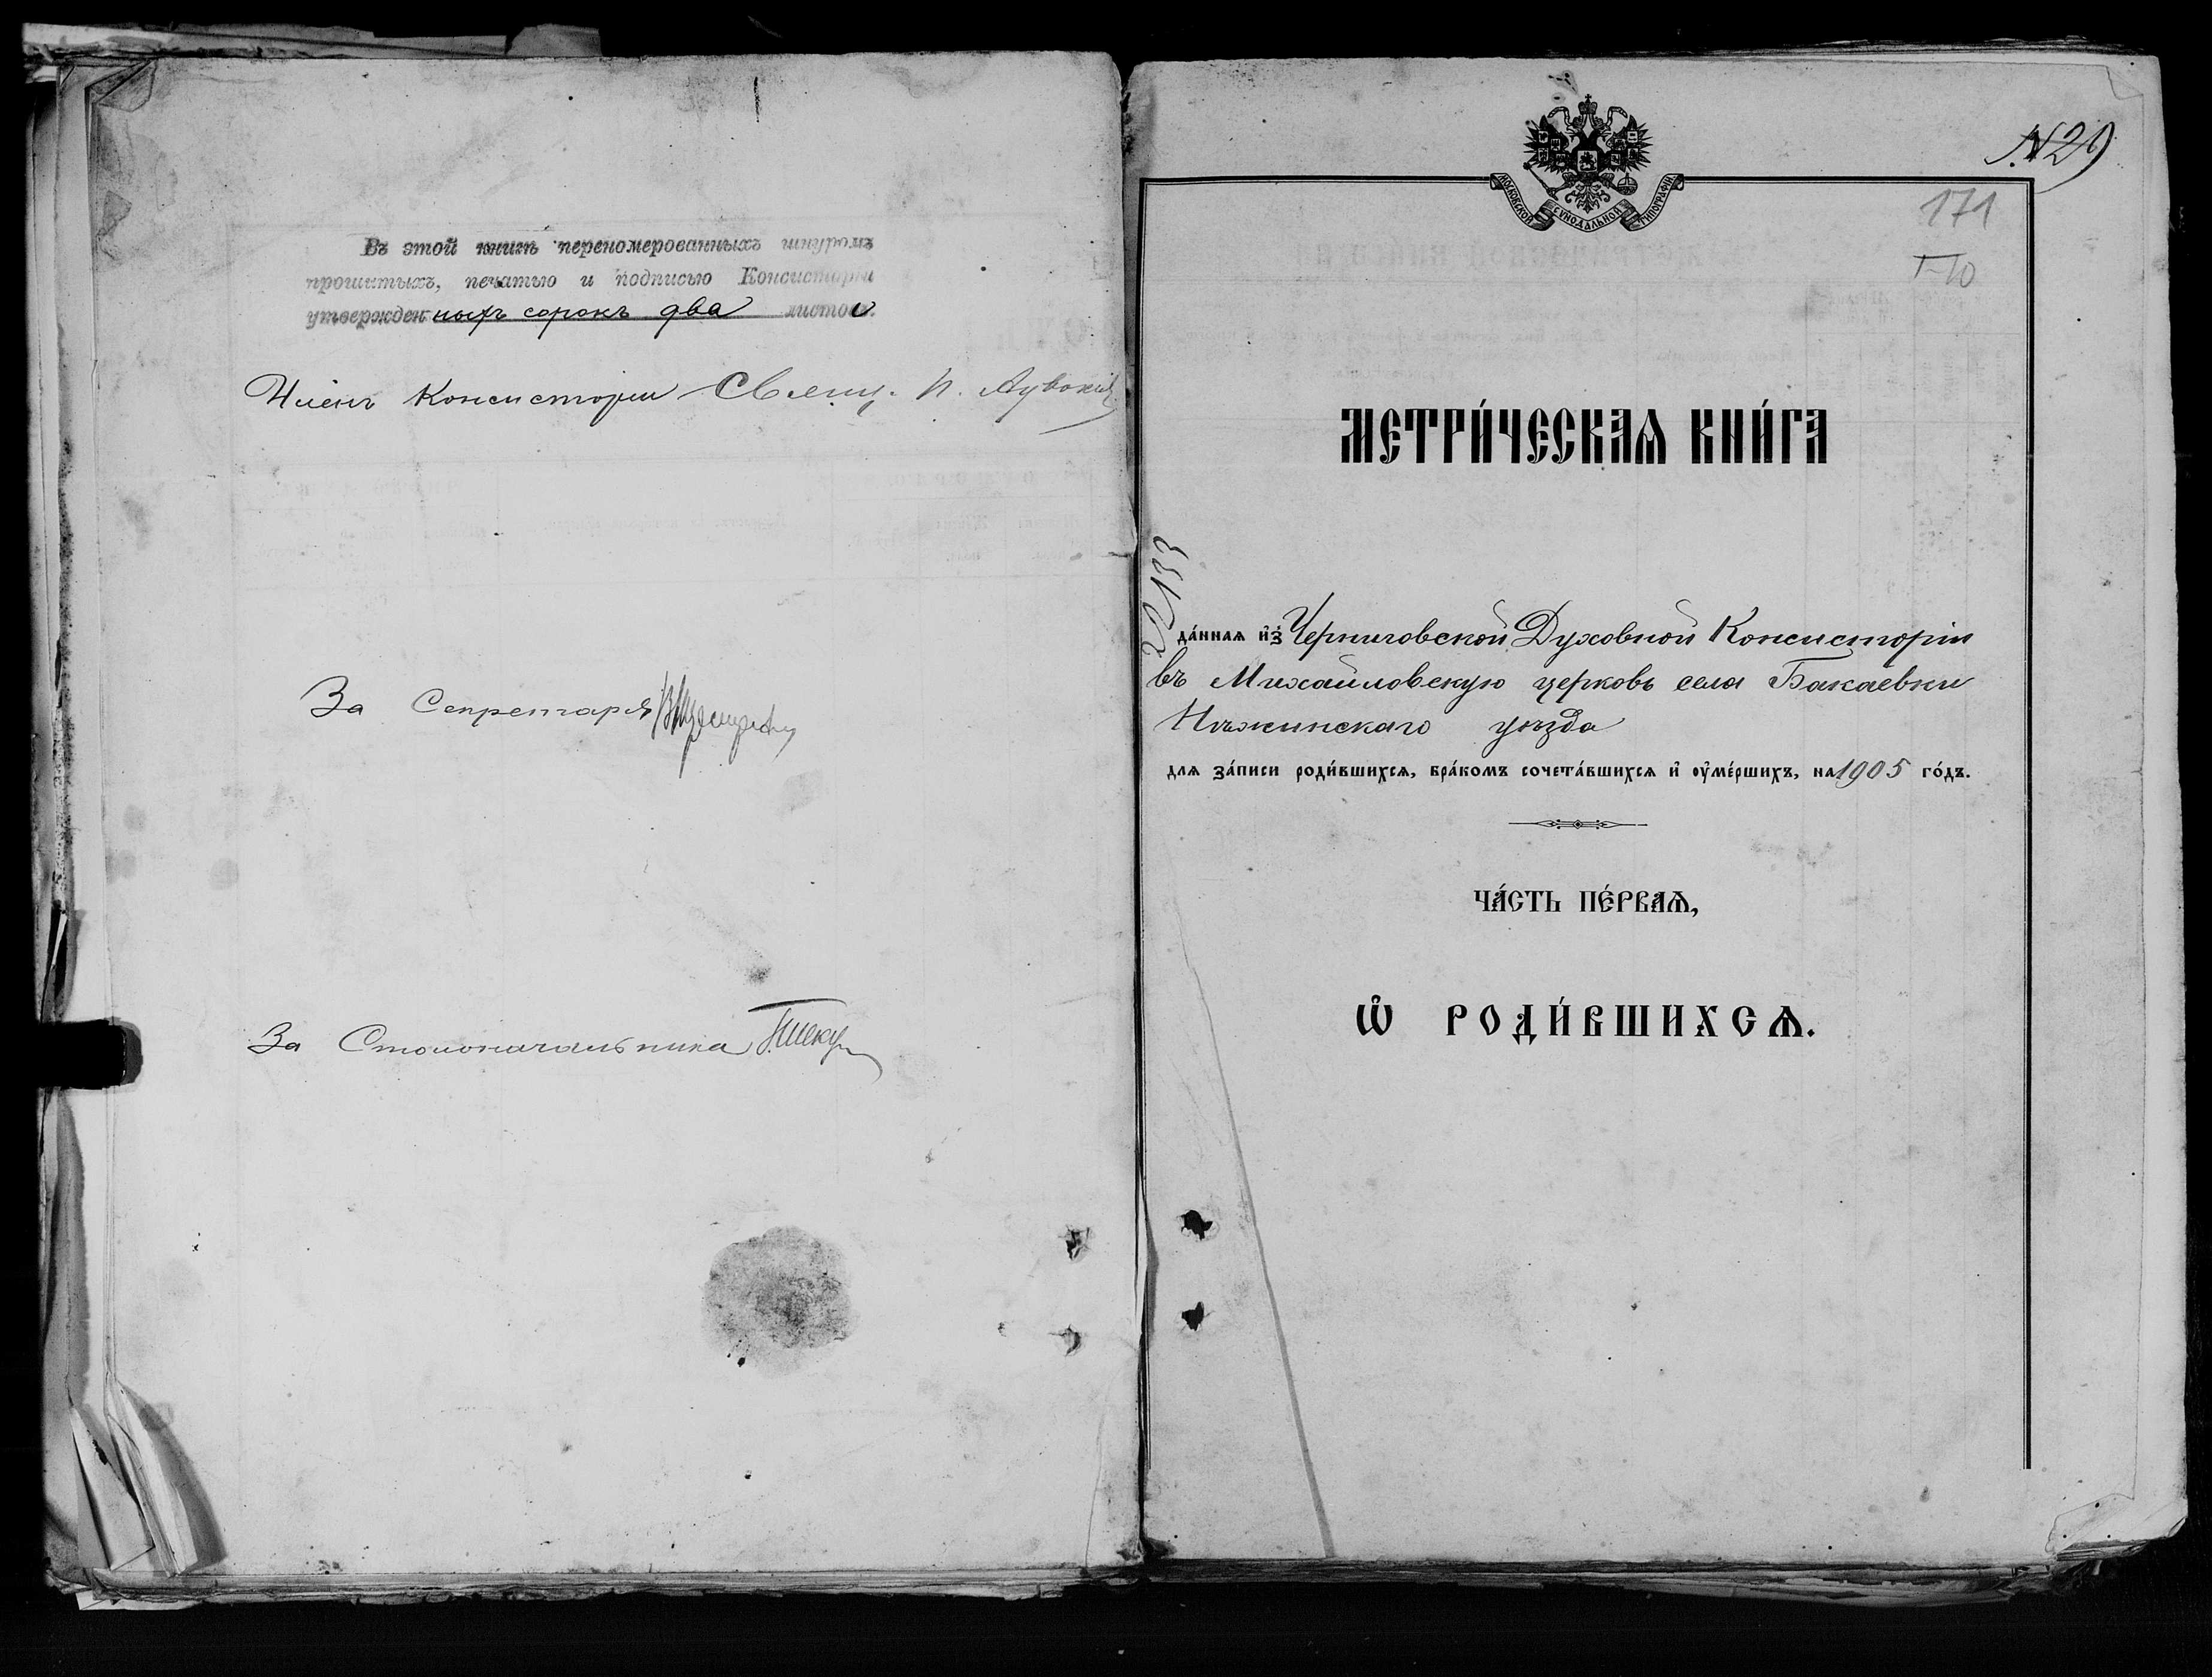 Въ этой книгѣ переномерованныхъ шнуромъ
прошитыхъ, печатью и подписью Консисторіи
утвержденныхъ сорокъ два листовъ.
Членъ Консисторіи Свящ. П.
За Секретаря
За Столоначальника
N29
171
МОСКОВСКОЙ СѴНОДАЛЬНОЙ ТИПОГРАФІИ
МЕТРИ́ЧЕСКАѦ КНИ́ГА
22133
да́ннаѧ и҆з̾ Черниговской Духовной Консисторіи
въ Михайловскую церковь села Бакаевки
Нѣжинскаго уѣзда
длѧ за́писи роди́вшихсѧ, бра́комъ сочета́вшихсѧ и҆ ᲂу҆ме́ршихъ, на 1905 го́дъ.
ЧА́СТЬ ПЕ́РВАѦ,
Ѽ РОДИ́ВШИХСѦ.